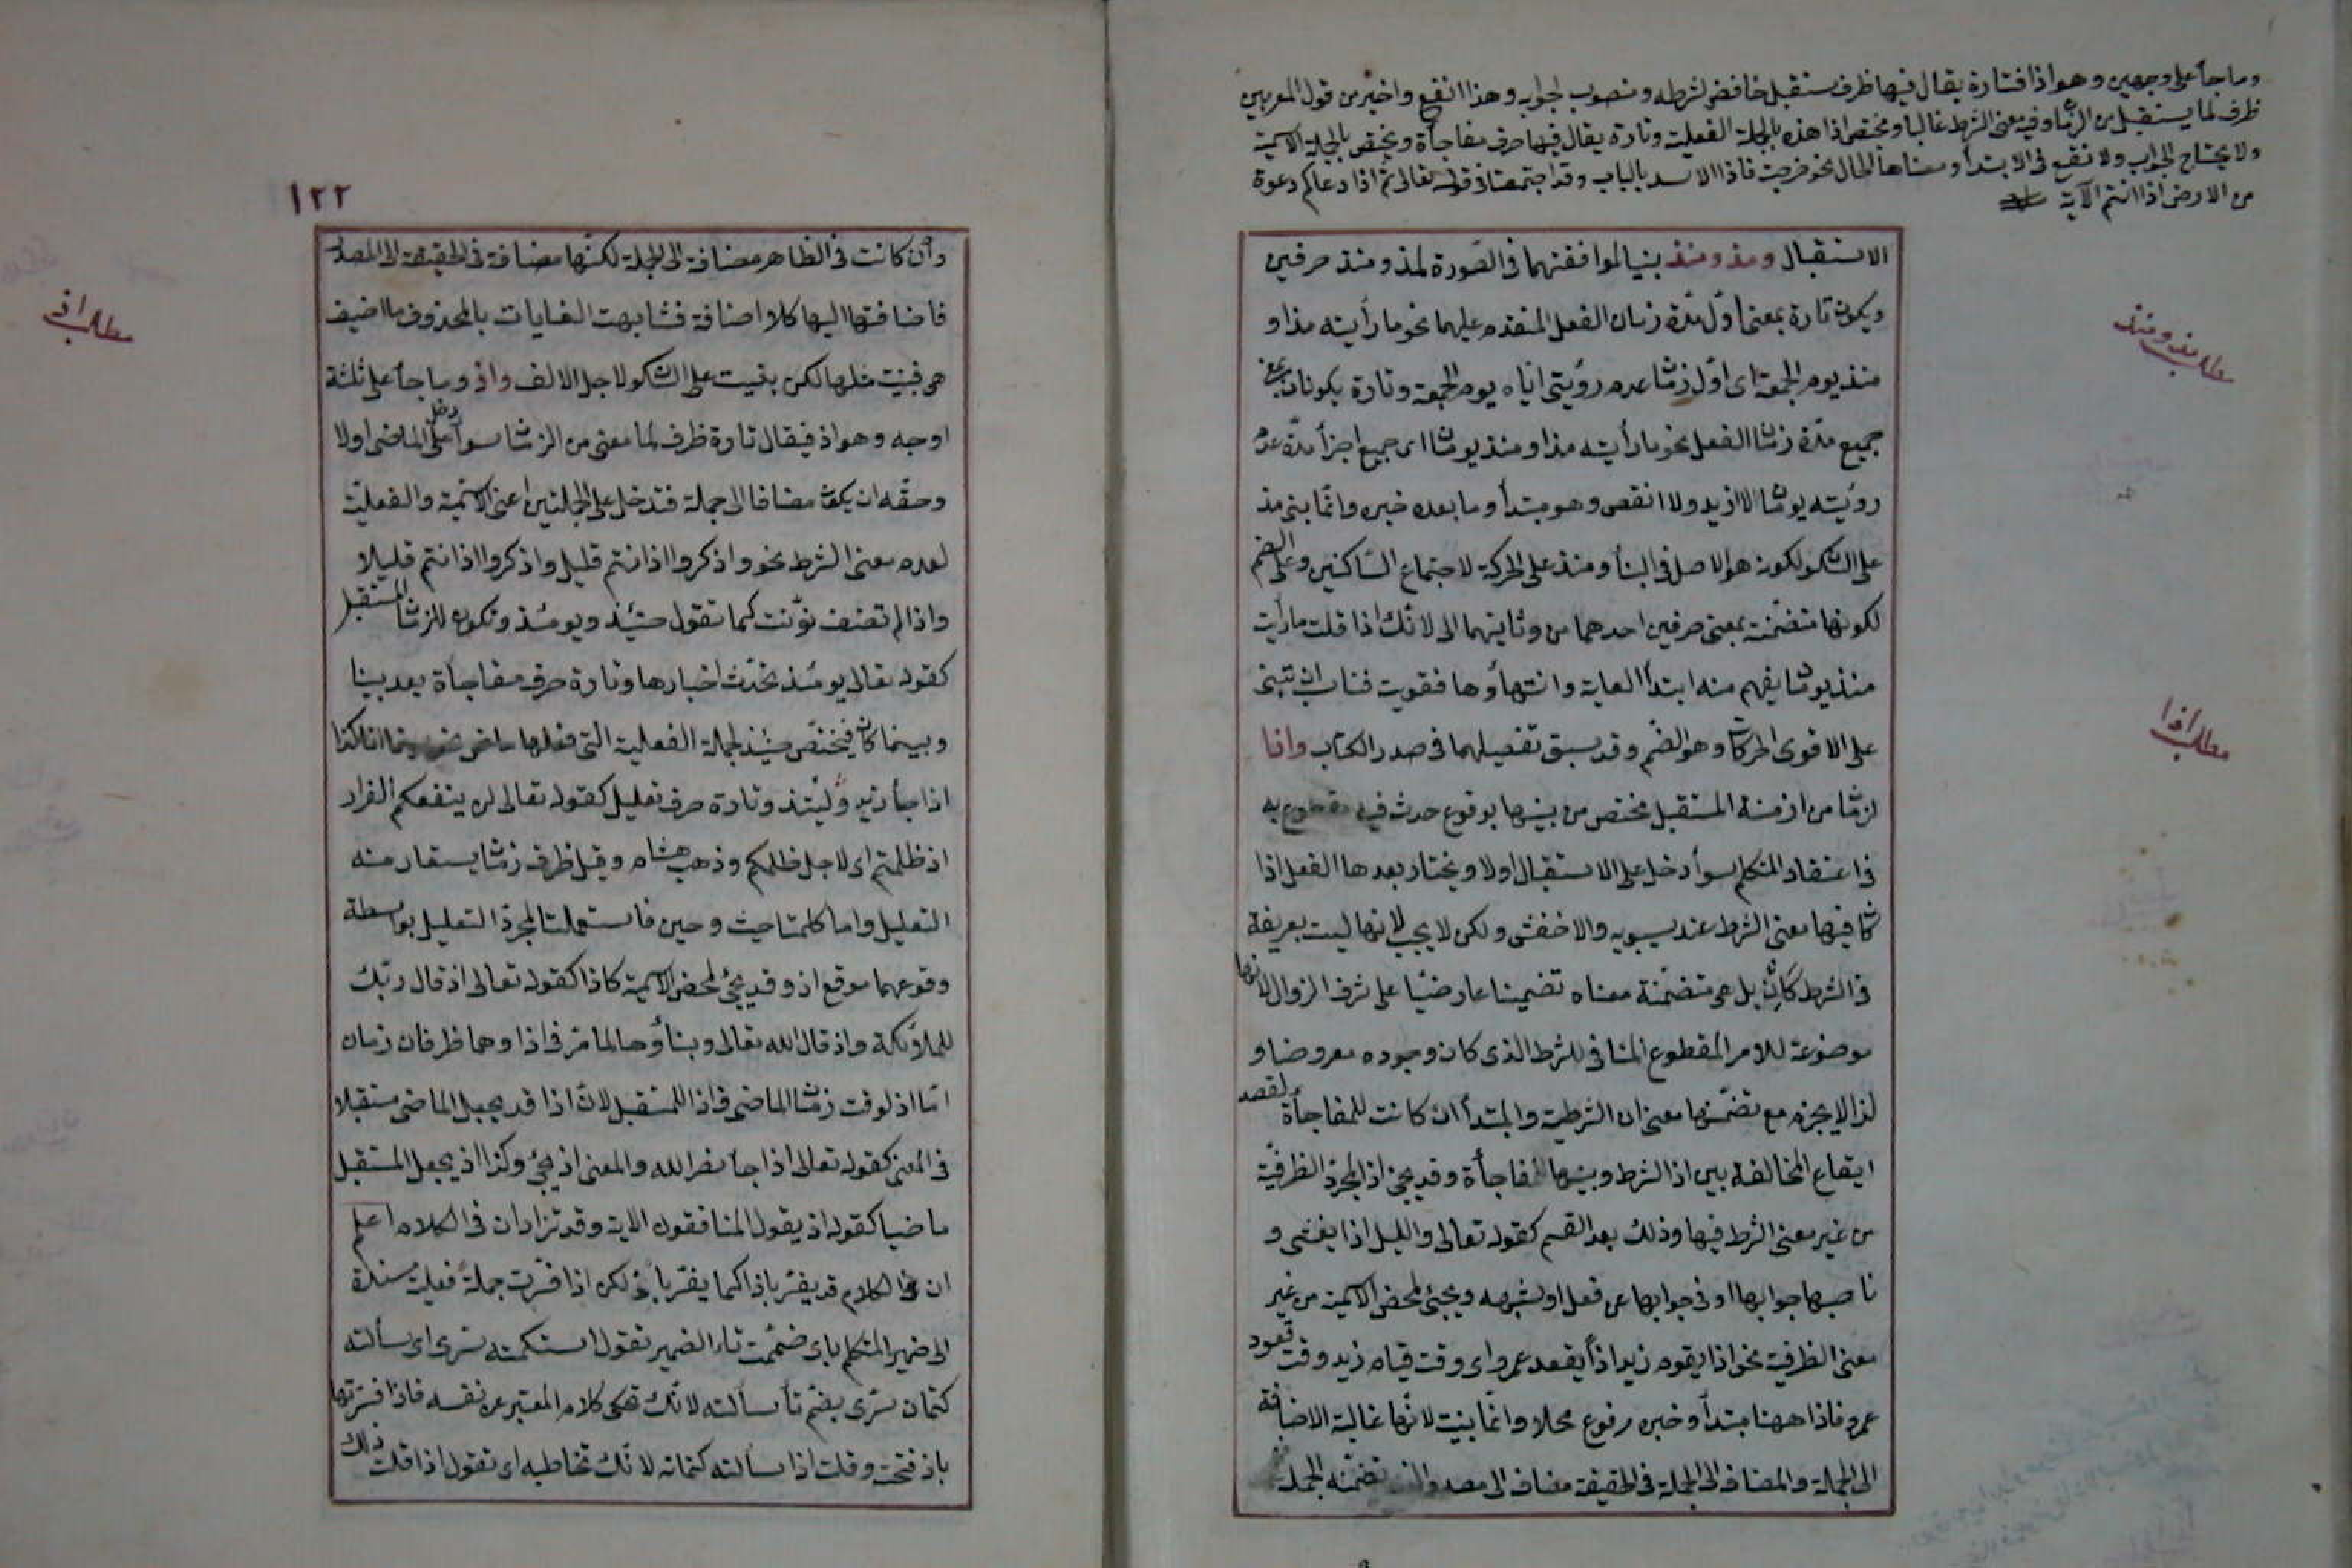 وما جأ على وجهين وهو اذا فتارة يقال فيها ظرف مستقبل خافض لشرطه ومنصوب لجوابه وهذا انفع واخير من قول المعربين
ظرف لما يستقبل من الزمان وفيه معنى الشرط غالبا ومختص اذا هذه بالجملة الفعلية وتارة يقال فيها حرف مفاجأة ويختص بالجملة الاسمية
ولا يحتاج لجواب ولا تقع فى الابتدأ ومعناها الحال نحو خرجت فاذا الاسد بالباب وقد اجتمعتا فى قوله تعالى ثم اذا دعاكم دعوة
من الارض اذا انتم الآية
الاستقبال ومذ ومنذ بنيا لموافقتهما فى الصورة لمذ ومنذ حرفين
مطلب مذ ومنذ
ويكون تارة بمعنى اول مدة زمان الفعل المتقدم عليهما نحو ما رأيته مذ او
منذ يوم الجمعة اى اول زمان عدم رؤيتى اياه يوم الجمعة وتارة يكونان بمعنى
جميع مدة زمان الفعل نحو ما رأيته مذ او منذ يومان اى جميع اجزأ مدة عدم
رؤيته يومان لا ازيد ولا انقص وهو مبتدأ وما بعده خبره وانما بنى مذ
على السكون لكونه هو الاصل فى البنأ ومنذ على الحركة لاجتماع الساكنين وعلى الضم
لكونها متضمنة بمعنى حرفين احدهما من وثانيتهما الى لانك اذا قلت ما رأيت
منذ يومان يفهم منه ابتدأ الغاية وانتهاؤها فقويت فناسب ان تبنى
على الاقوى الحركات وهو الضم وقد سبق تفصيلهما فى صدر الكتاب واذا
مطلب اذا
لزمان من ازمنة المستقبل مختص من بينها بوقوع حدث فيه مقطوع به
فى اعتقاد المتكلم سوأ دخل على الاستقبال اولا ويختار بعدها الفعل اذا
كان فيها معنى الشرط عند سيبويه والاخفش ولكن لا يجب لانها ليست بعريقة
فى الشرط كان بل هى متضمنة معناه تضمينا عارضيا على شرف الزوال لانها
موضوعة للامر المقطوع المنافى للشرط الذى كان وجوده مفروضا و
لذا لا يجزم مع تضمنها معنى ان الشرطية والمبتدأ ان كانت للمفاجأة لقصد
ايقاع المخالفة بين اذا الشرط وبينها للمفاجأة وقد يجئ اذا لمجرد الظرفية
من غير معنى الشرط فيها وذلك بعد القسم كقوله تعالى والليل اذا يغشى و
ناصبها جوابها او فى جوابها من فعل او شبهه ويجئ لمحض الاسمية من غير
معنى الظرفية نحو اذا يقوم زيد اذا يقعد عمرو اى وقت قيام زيد وقت قعود
عمرو فاذا ههنا مبتدأ وخبر مرفوع محلا وانما بنيت لانها غالبة الاضافة
الى الجملة والمضاف الى الجملة فى الحقيقة مضاف الى مصدر تضمنه الجملة
١٢٢
وان كانت فى الظاهر مضافة الى الجملة لكنها مضافة فى الحقيقة الى المصدر
فاضافتها اليها كلا اضافة فشابهت الغايات بالمحذوف ما اضيف
مطلب اذ
هى فبنيت مثلها لكن بقيت على السكون لاجل الالف واذ وما جأ على ثلثة
اوجه وهو اذ فيقال تارة ظرف لما معنى من الزمان سوأ دخل على الماضى اولا
وحقه ان يكون مضافا الى جملة فتدخل على الجملتين اعنى الاسمية والفعلية
لعدم معنى الشرط نحو واذكروا اذ انتم قليل واذكروا اذ انتم قليلا
واذا لم تضف نونت كما تقول حينئذ ويومئذ وتكون للزمان المستقبل
كقوله تعالى يومئذ تحدث اخبارها وتارة حرف مفاجأة بعد بينا
وبينما كان فيختص حينئذ لجملة الفعلية التى فعلها ماض نحو بينما انا كذا
اذا جأ زيد ولينذ وتارة حرف تعليل كقوله تعالى لن ينفعكم الفرار
اذ ظلمتم اى لاجل ظلمكم وذهب هشام وقيل ظرف زمان يستفاد منه
التعليل واما كلمتا حيث وحين فاستعملتا لمجرد التعليل بواسطة
وقوعهما موقع اذ وقد يجئ لمحض الاسمية كاذا كقوله تعالى اذ قال ربك
للملائكة واذ قال الله تعالى وبناؤها لما مر فى اذا وهما ظرفان زمان
اما اذ لوقت زمان الماضى واذا للمستقبل لان اذا قد يجعل الماضى مستقبلا
فى المعنى كقوله تعالى اذا جأ نصر الله والمعنى اذ يجئ وكذا اذ يجعل المستقبل
ماضيا كقوله اذ يقول المنافقون الاية وقد تزادان فى الكلام اعلم
ان الكلام قد يفسر باذا كما يفسر باى لكن اذا فسرت جملة فعلية مسندة
الى ضمير المتكلم باى ضممت تاء الضمير تقول استكتمته سرى اى سألته
كتمان سرى بضم تأ سألته لانك تحكى كلام المعتبر عن نفسه فاذا فسرتها
باذ فتحت وقلت اذا سألته كتمانه لانك تخاطبه اى تقول اذا قلت ذلك